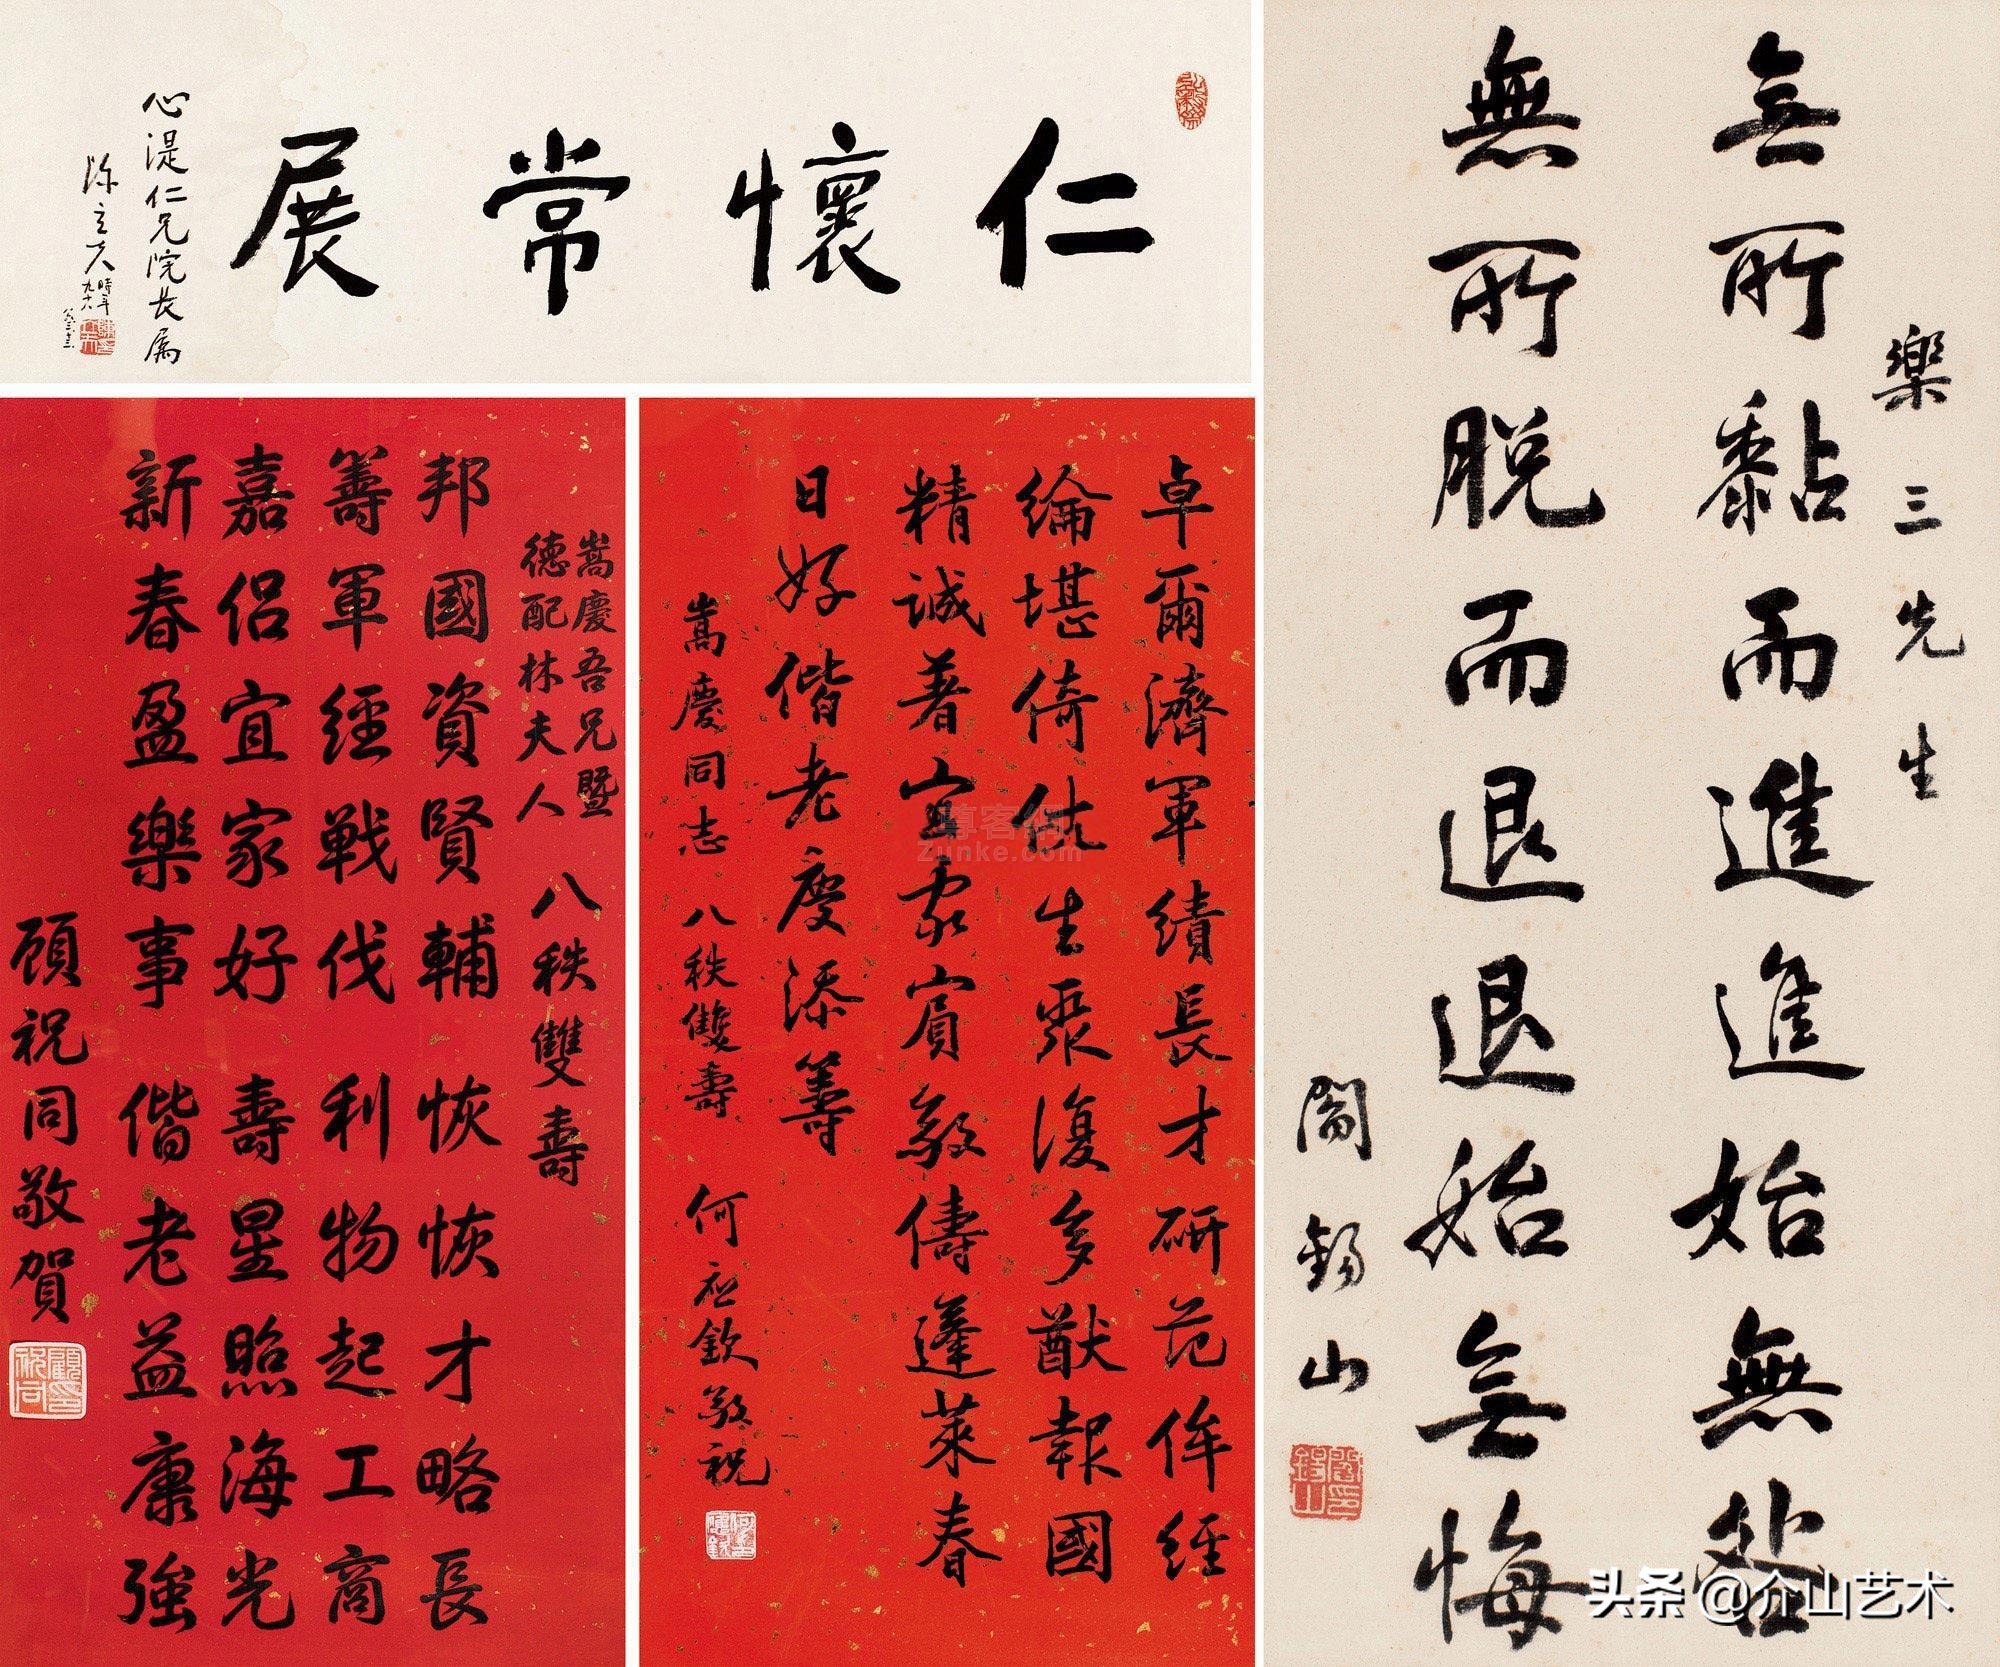 仁懷常展
心湜仁兄院長属
陳立夫時年九十六
嵩慶吾兄暨
德配林夫人 八秩雙壽
邦國資賢輔 恢恢才略長
籌軍經戰伐 利物起工商
嘉侶宜家好 壽星照海光
新春盈樂事 偕老益康強
顧祝同敬賀
卓爾濟軍績長才研范侔經
綸堪倚仗生聚復多猷報國
精誠著宜家賓敬儔蓬萊春
日好偕老慶添籌
嵩慶同志 八秩雙壽 何應欽敬祝
樂三先生
無所黏而進進始無咎
無所脫而退退始無悔
閻錫山
尊客網
Zunke.com
头条 @介山艺术